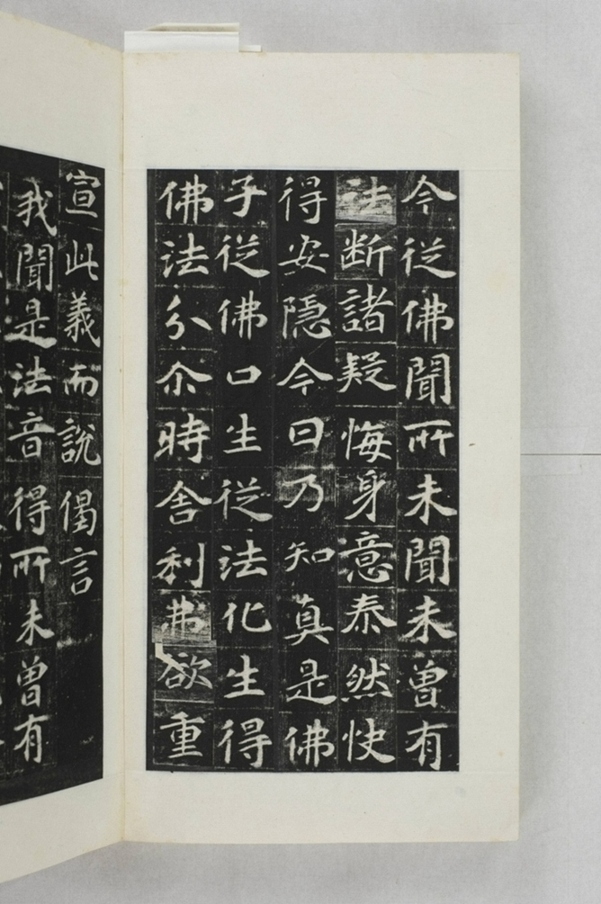 今從佛聞所未聞未曾有
法断諸疑悔身意泰然快
得安隱今日乃知真是佛
子從佛口生從法化生得
佛法分尒時舍利弗欲重
宣此義而說偈言
我聞是法音得所未曾有